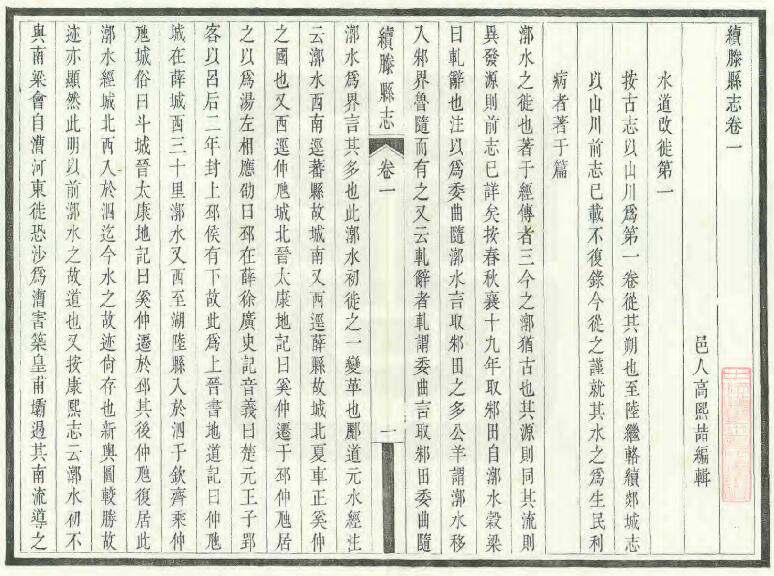 續滕縣志卷一
邑人高熙喆編輯
水道改徙第一
按古志以山川爲第一卷從其朔也至陸繼輅續郯城志
以山川前志已載不復錄今從之謹就其水之爲生民利
病者著于篇
漷水之徙也著于經傳者三今之漷猶古也其源則同其流則
異發源則前志已詳矣按春秋襄十九年取邾田自漷水穀梁
曰軋辭也注以爲委曲隨漷水言取邾田之多公羊謂漷水移
入邾界魯隨而有之又云軋辭者軋謂委曲言取邾田委曲隨
續滕縣志
卷一
一
漷水爲界言其多也此漷水初徙之一變革也酈道元水經注
云漷水西南逕蕃縣故城南又西逕薛縣故城北夏車正奚仲
之國也又西逕仲虺城北晉太康地記曰奚仲遷于邳仲虺居
之以爲湯左相應劭曰邳在薛徐廣史記音義曰楚元王子郢
客以呂后二年封上邳侯有下故此爲上晉書地道記曰仲虺
城在薛城西三十里漷水又西至湖陸縣入於泗于欽齊乘仲
虺城俗曰斗城晉太康地記曰奚仲遷於邳其後仲虺復居此
漷水經城北西入於泗迄今水之故迹尙存也新輿圖較勝故
迹亦顯然此明以前漷水之故道也又按康熙志云漷水初不
與南梁會自漕河東徙恐沙爲漕害築皇甫壩遏其南流導之